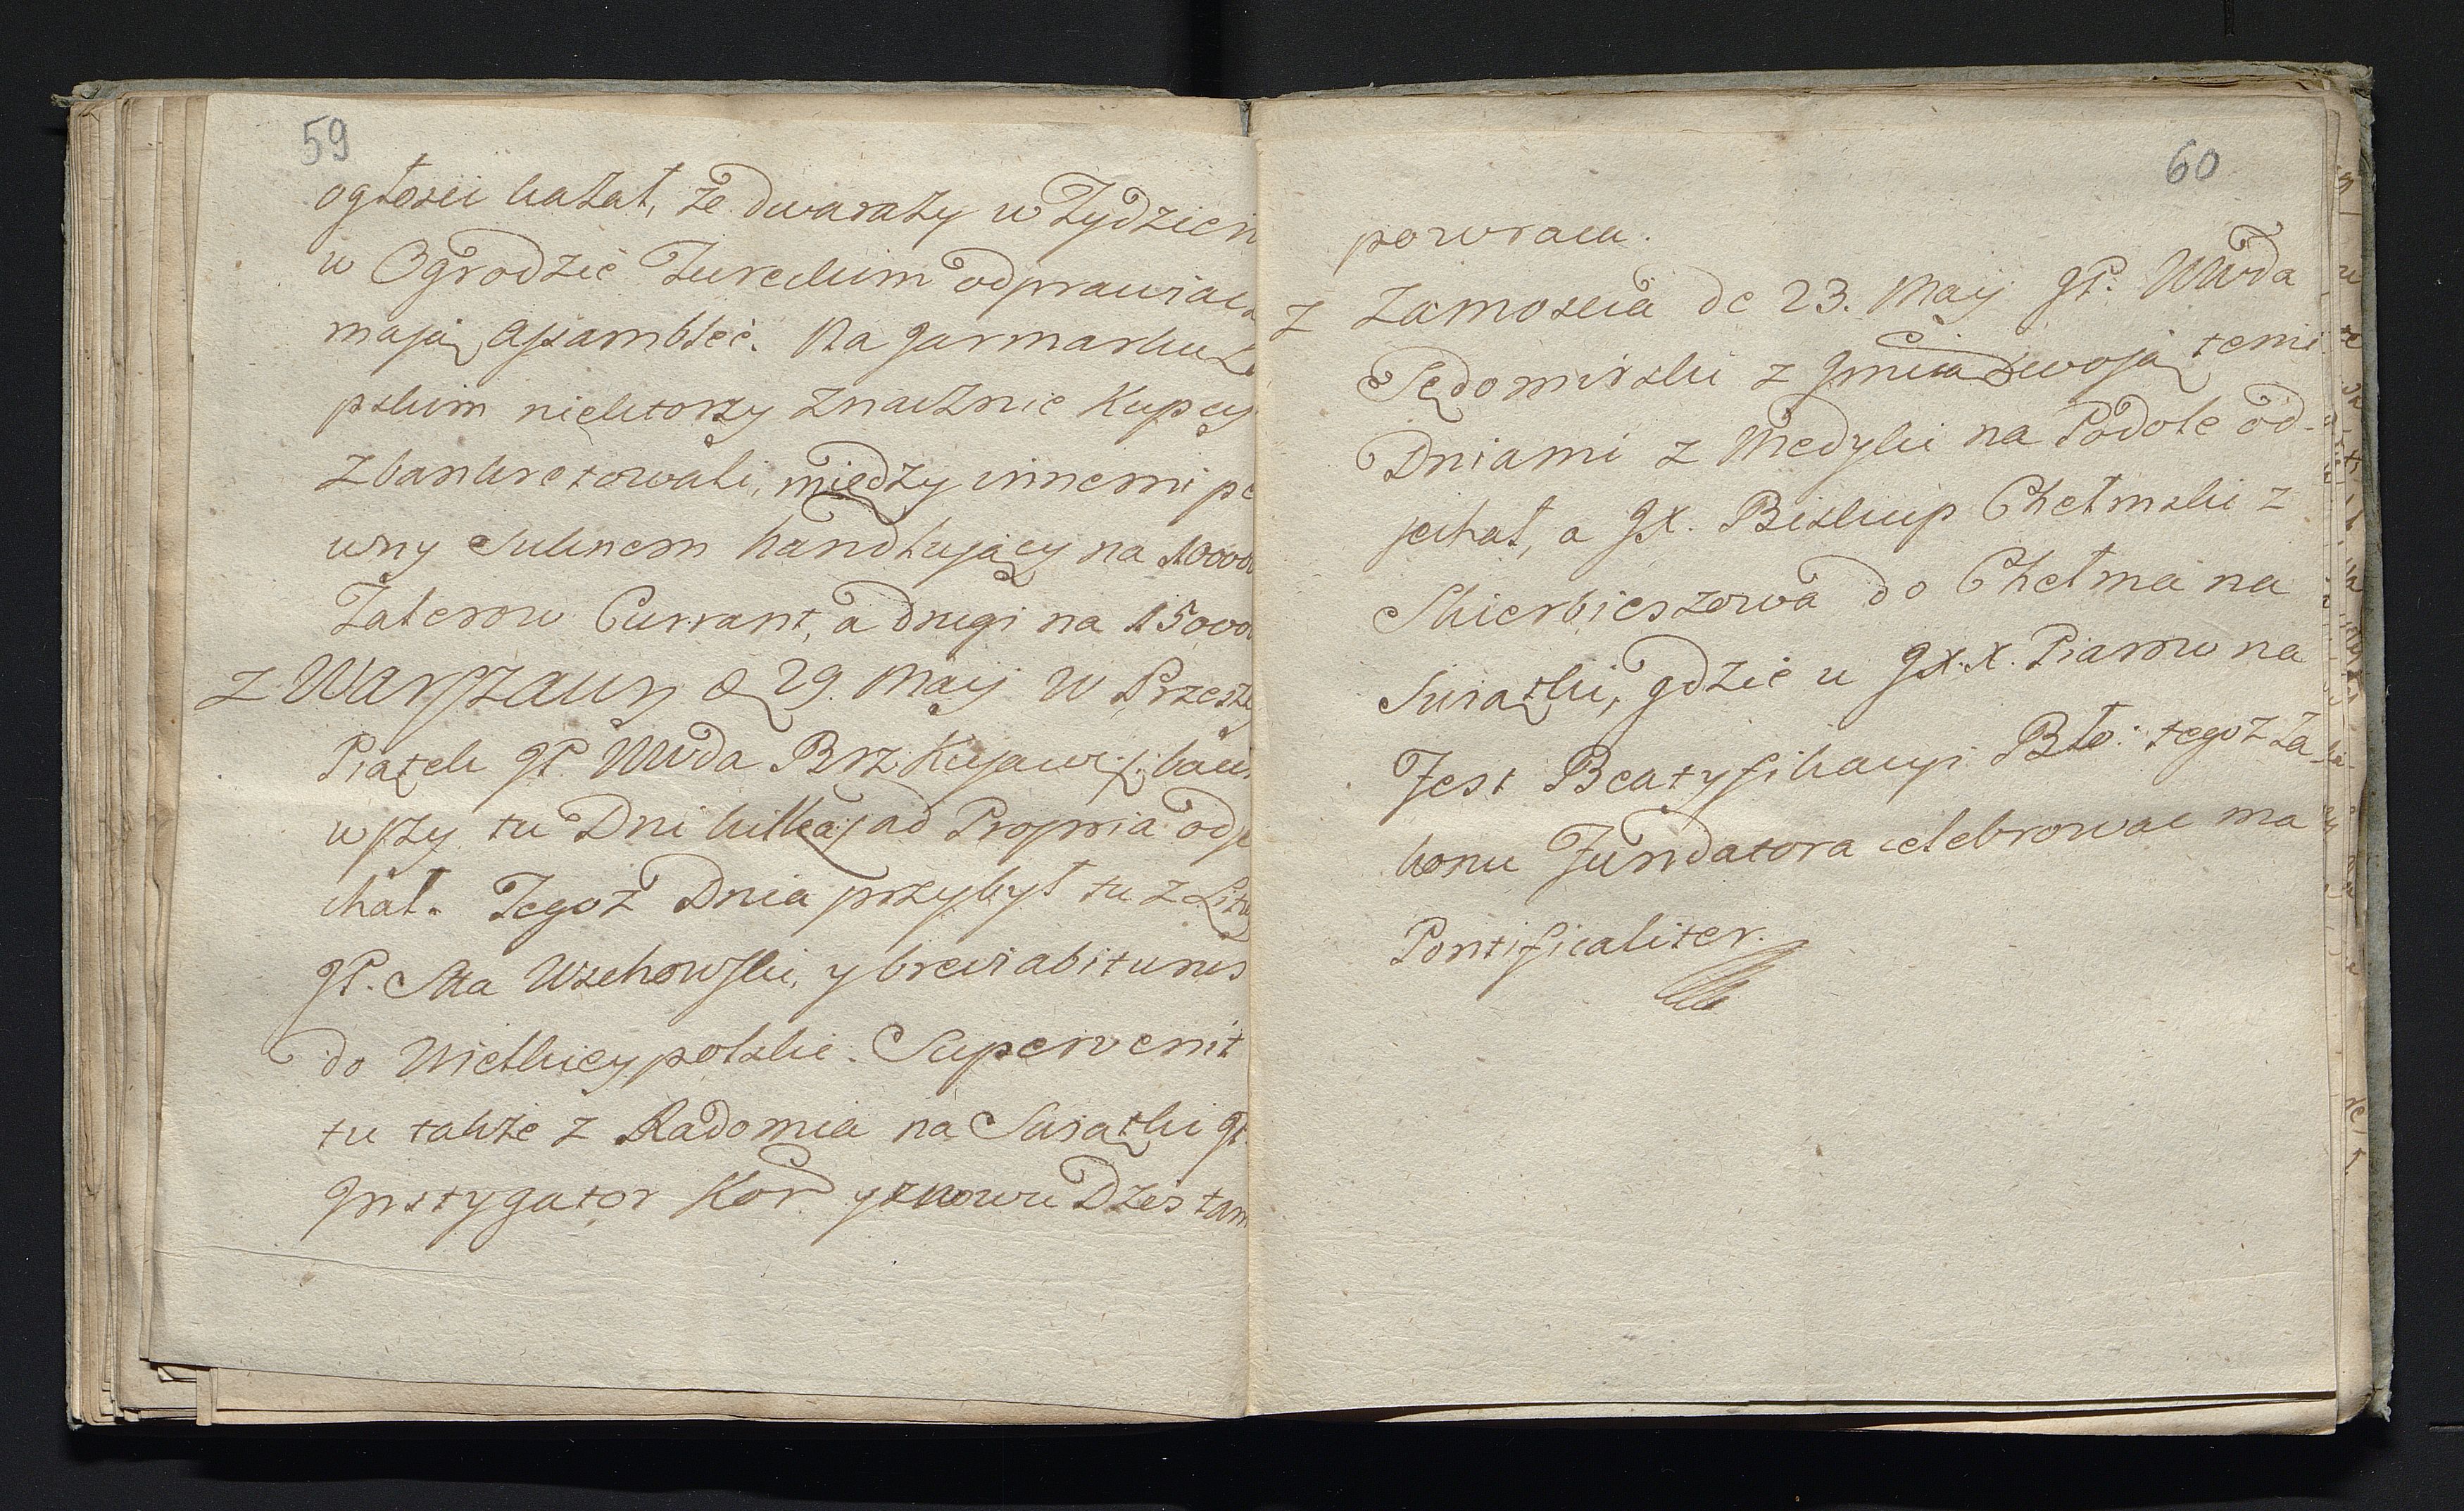 59
ogłosić kazał, że dwa razy w Tydzień
w Ogrodzie Tureckim odprawiać
mają Assambleé. Na Jarmarku Li
pskim niektorzy znacznie Kupcy
zbankretowali, między innemi pe
wny Suknem handlujący na 10000
Talerow Currant, a drugi na 15000
z Warszawy d 29. Maij W Przeszły
Piątek JP. WWda Brz Kujaw: /: bawi
wszy tu Dni kilka :/ ad Propria odje
chał. Tegoż Dnia przybył tu z Litwy
JP. Stta Wschowski, y brevi abiturus
do Wielkiey polski. Supervenit
tu także z Radomia na Swiątki JP.
Instygator Kor y znowu Dzes tam
60
powraca.
z Zamoscia de 23. Maij JP. WWda
Sędomirski z Jmcia swoją temi
Dniami z Medyki na Podole od-
jechał, a JX. Biskup Chełmski z
Skierbieszowa do Chełma na
Swiątki, gdzie u JX.X. Piarow na
Fest Beatyfikacyi Bło: tegoż Za
konu Fundatora celebrowac ma
Pontificaliter.